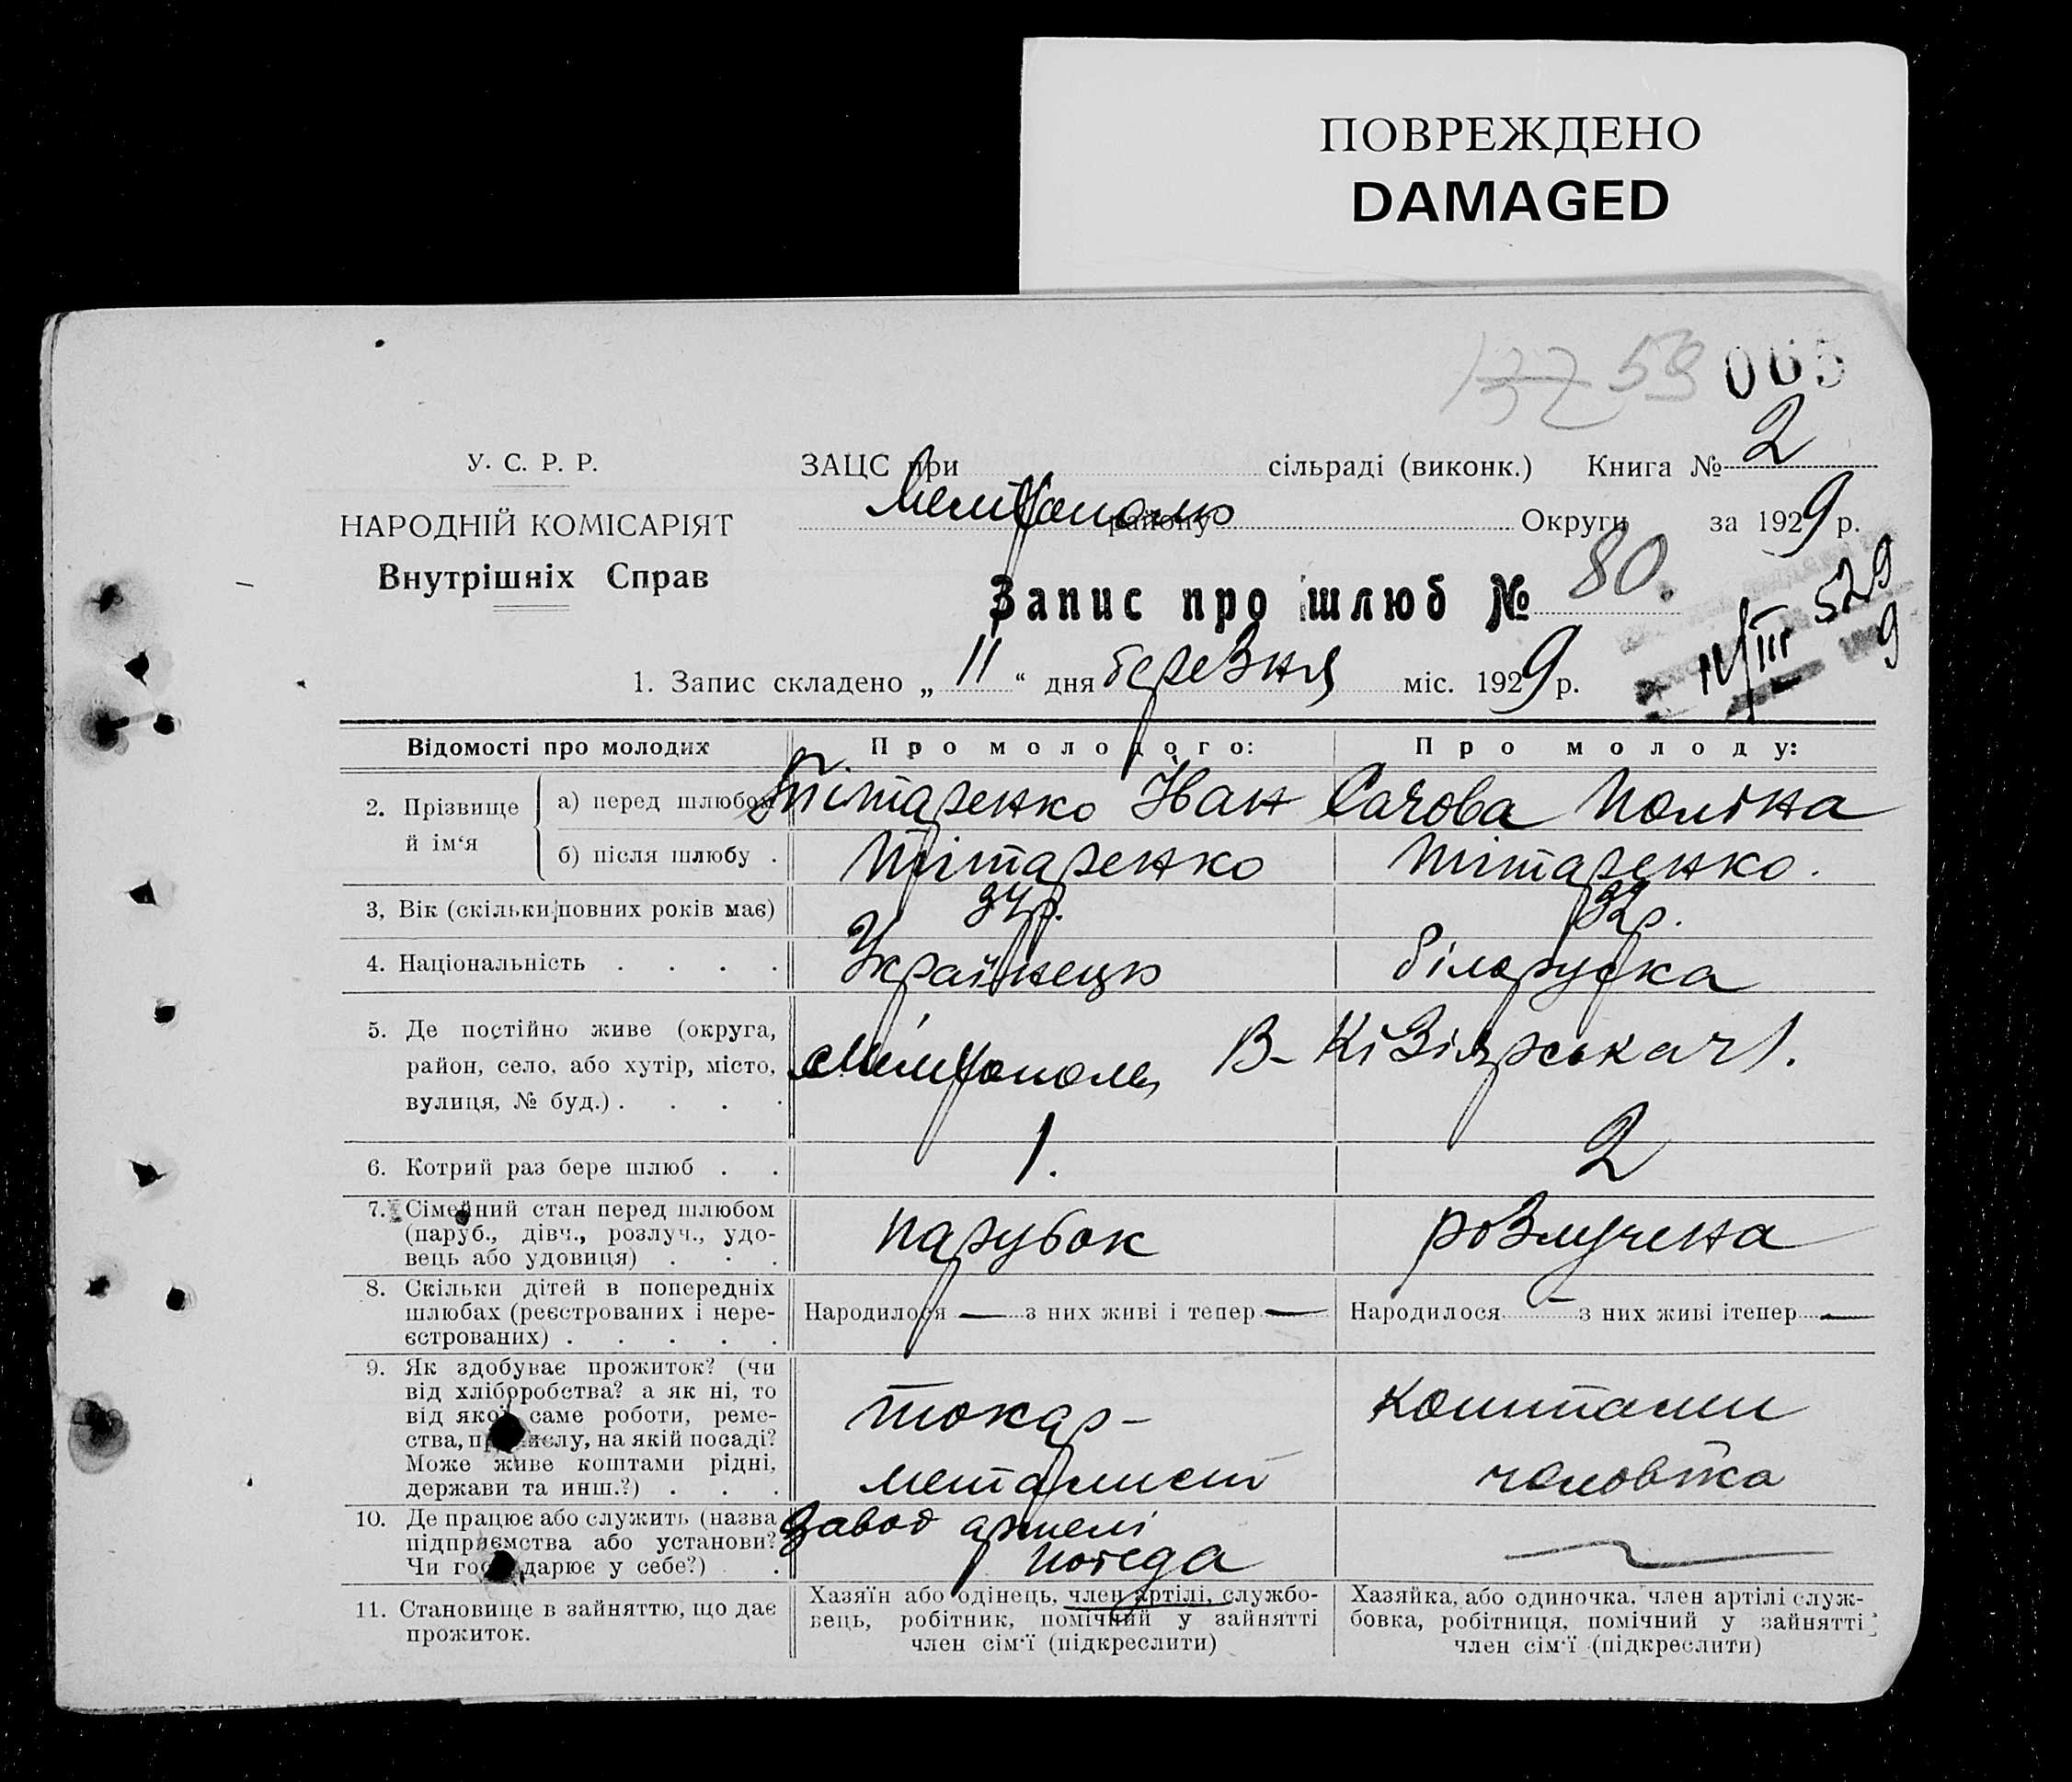 ПОВРЕЖДЕНО
DAMAGED
59 065
У. С. Р. Р.
НАРОДНІЙ КОМІСАРІЯТ
Внутрішніх Справ
ЗАЦС при сільраді (виконк.) Книга № 2
Мелітополю району Округи за 1929 р.
Запис про шлюб № 80.
11/III 529
9
1. Запис складено „ 11 “ дня березня міс. 1929 р.
Відомості про молодих
Про молодого:
Про молоду:
2. Прізвище й ім‘я
а) перед шлюбом Тітаренко Іван Сачова Поліна
б) після шлюбу . Тітаренко Тітаренко.
3, Вік (скільки повних років має) 34р. 32р.
4. Національність . . . . Українець білоруска
5. Де постійно живе (округа,
район, село, або хутір, місто,
вулиця, № буд.) . . . .
Мелітополь В-Кізіярська ч 1.
6. Котрий раз бере шлюб . . 1. 2
7. Сімейний стан перед шлюбом
(паруб., дівч., розлуч., удо-
вець або удовиця) . . .
парубок розлучена
8. Скільки дітей в попередніх
шлюбах (реєстрованих і нере-
єстрованих) . . . . .
Народилося — з них живі і тепер —
Народилося — з них живі ітепер —
9. Як здобуває прожиток? (чи
від хліборобства? а як ні, то
від якої саме роботи, реме-
ства, промислу, на якій посаді?
Може живе коштами рідні,
держави та инш.?) . . .
токар-
металист
коштами
чоловіка
10. Де працює або служить (назва
підприємства або установи?
Чи господарює у себе?) .
Завод артелі
победа
—
11. Становище в зайняттю, що дає
прожиток.
Хазяїн або одінець, член артілі, службо-
вець, робітник, помічний у зайнятті
член сім‘ї (підкреслити)
Хазяйка, або одиночка, член артілі служ-
бовка, робітниця, помічний у зайнятті
член сім‘ї (підкреслити)